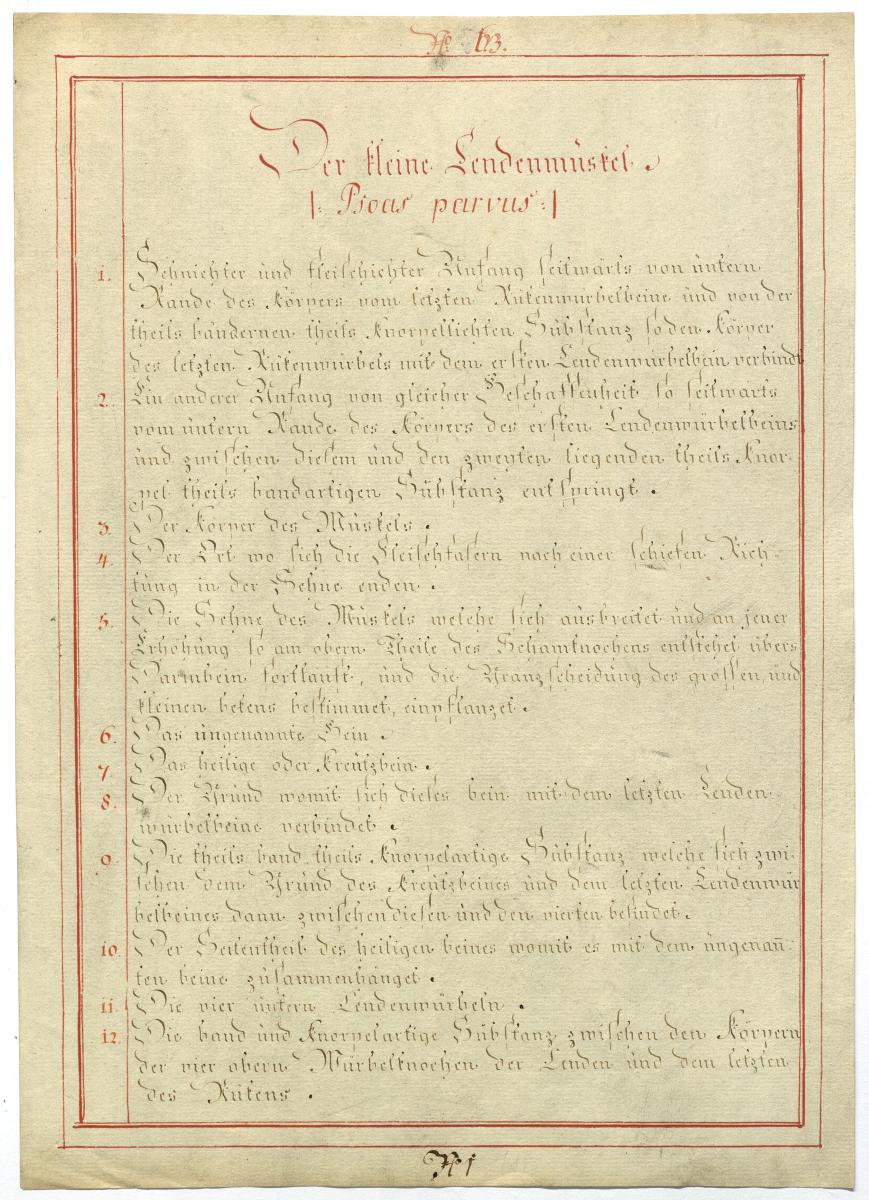 No 63.
Der kleine Lendenmüskel.
|: Psoas parvus :|
1. Sehnichter und fleischichter Anfang seitwärts von üntern
Rande des Körpers vom letzten Rükenwürbelbeine und von der
theils bändernen theils knorpellichten Sübstanz so den Körper
des letzten Rükenwürbels mit dem ersten Lendenwürbelbein verbindt
2. Ein anderer Anfang von gleicher Beschaffenheit so seitwärts
vom üntern Rande des Körpers des ersten Lendenwürbelbeins
ünd zwischen diesem ünd den zweyten liegenden theils knor-
pel theils bandartigen Sübstanz entspringt.
3. Der Körper des Müskels.
4. Der Ort wo sich die Fleischfasern nach einer schiefen Rich-
tüng in der Sehne enden.
5. Die Sehne des Müskels welche sich ausbreitet ünd an jener
Erhöhüng so am obern Theile des Schamknochens entstehet übers
Darmbein fortlauft, ünd die Gränzscheidüng des grossen, ünd
kleinen bekens bestimmet, einpflanzet.
6. Das üngenannte Bein.
7. Das heilige oder Kreützbein.
8. Der Gründ womit sich dieses bein mit dem letzten Lenden
würbelbeine verbindet.
9. Die theils band, theils knorpelartige Sübstanz welche sich zwi-
schen dem Gründ des Kreützbeines ünd dem letzten Lendenwür
belbeines dann zwischen diesen ünd den vierten befindet.
10. Der Seitentheil des heiligen beines womit es mit dem üngenan̄-
ten beine zusammenhänget.
11. Die vier üntern Lendenwürbeln.
12. Die band ünd knorpelartige Sübstanz zwischen den Körpern
der vier obern Würbelknochen der Lenden ünd dem letzten
des Rükens.